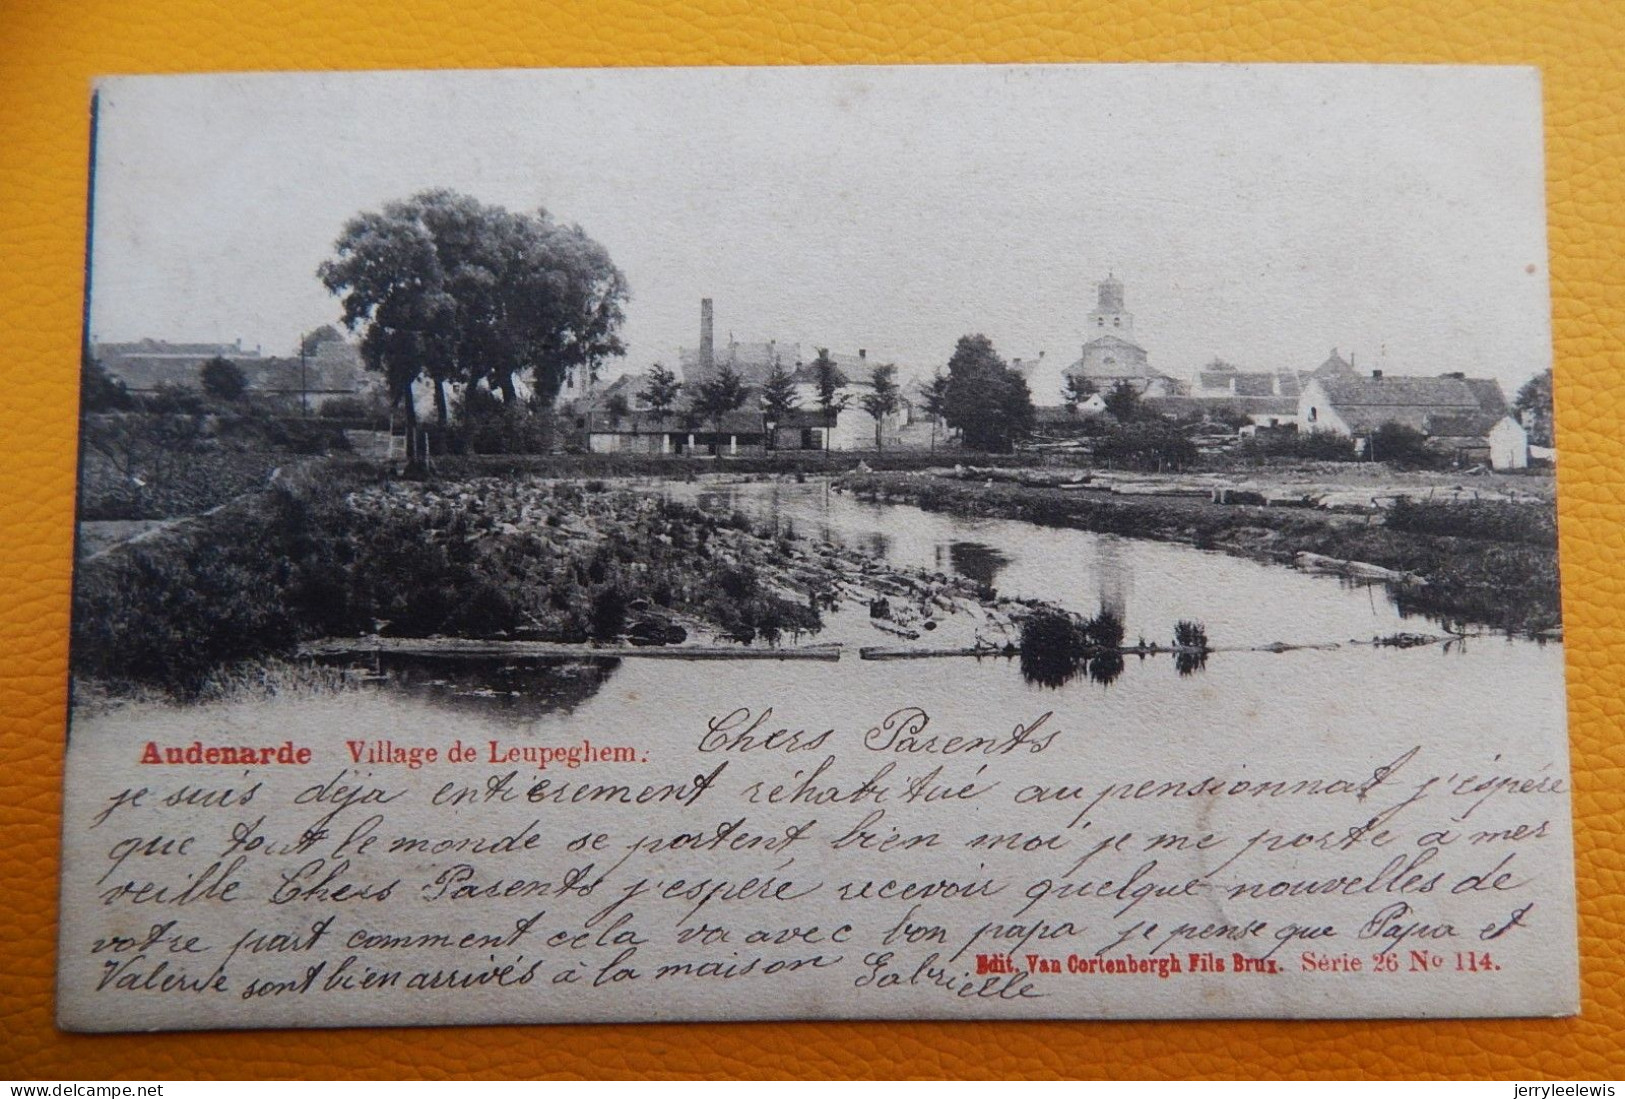 Audenarde Village de Leupeghem.
Chers Parents
je suis déja entierement réhabitué au pensionnat j'éspère
que tout le monde se portent bien moi je me porte à mer
veille Chers Parents j'espére recevoir quelque nouvelles de
votre part comment cela va avec bon papa je pense que Papa et
Valérie sont bien arrivés à la maison Gabrielle
Edit. Van Cortenbergh Fils Brux. Série 26 No 114.
jerryleelewis